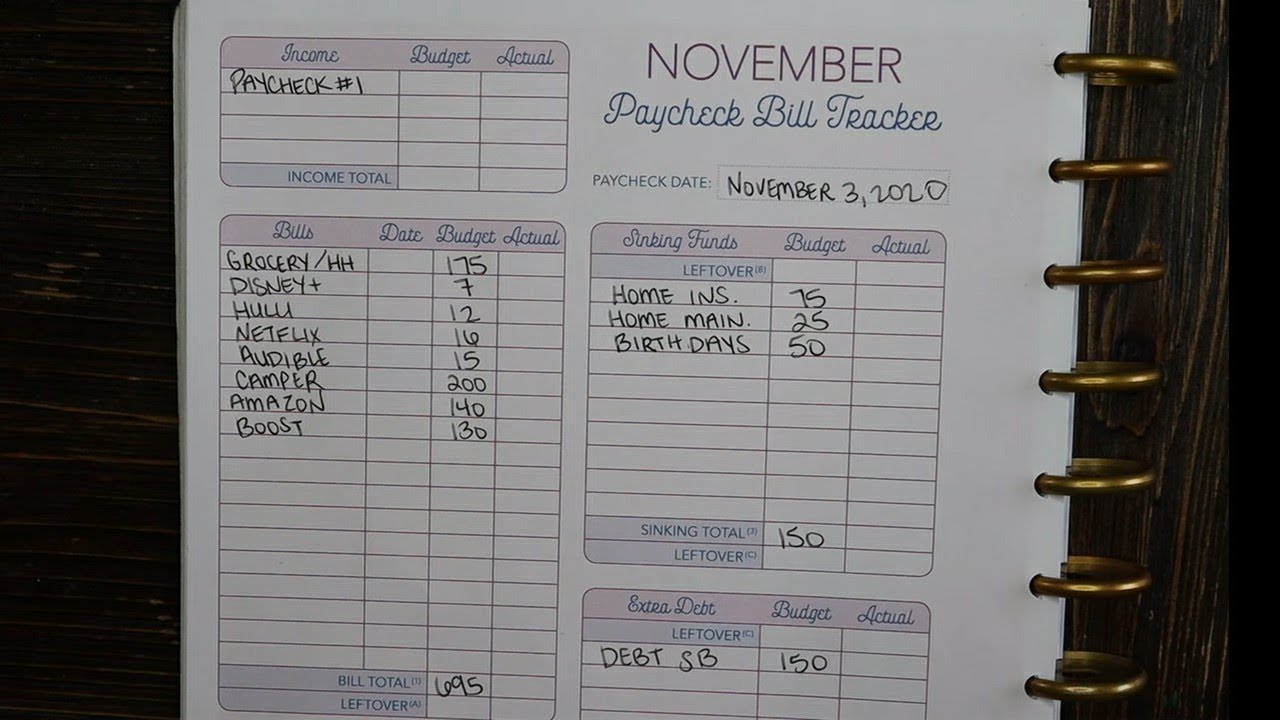 Income Budget Actual
PAYCHECK #1
INCOME TOTAL
NOVEMBER
Paycheck Bill Tracker
PAYCHECK DATE: NOVEMBER 3, 2020
Bills Date Budget Actual
GROCERY/HH 175
DISNEY+ 7
HULU 12
NETFLIX 16
AUDIBLE 15
CAMPER 200
AMAZON 140
BOOST 130
BILL TOTAL (1) 695
LEFTOVER (A)
Sinking Funds Budget Actual
LEFTOVER (B)
HOME INS. 75
HOME MAIN. 25
BIRTHDAYS 50
SINKING TOTAL (3) 150
LEFTOVER (C)
Extra Debt Budget Actual
LEFTOVER (C)
DEBT SB 150